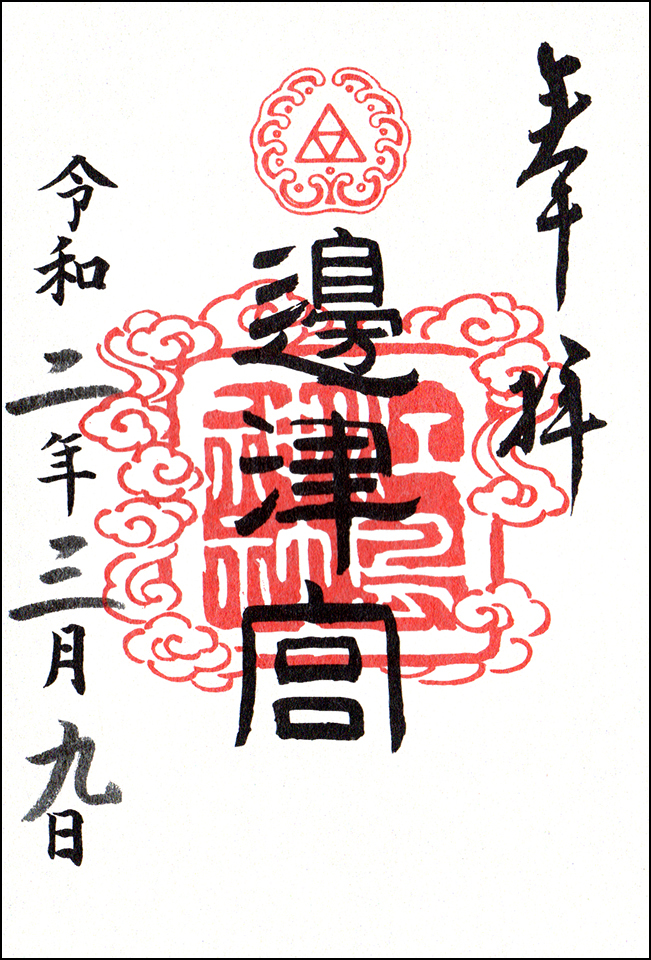 奉拝
邊津宮
令和二年三月九日